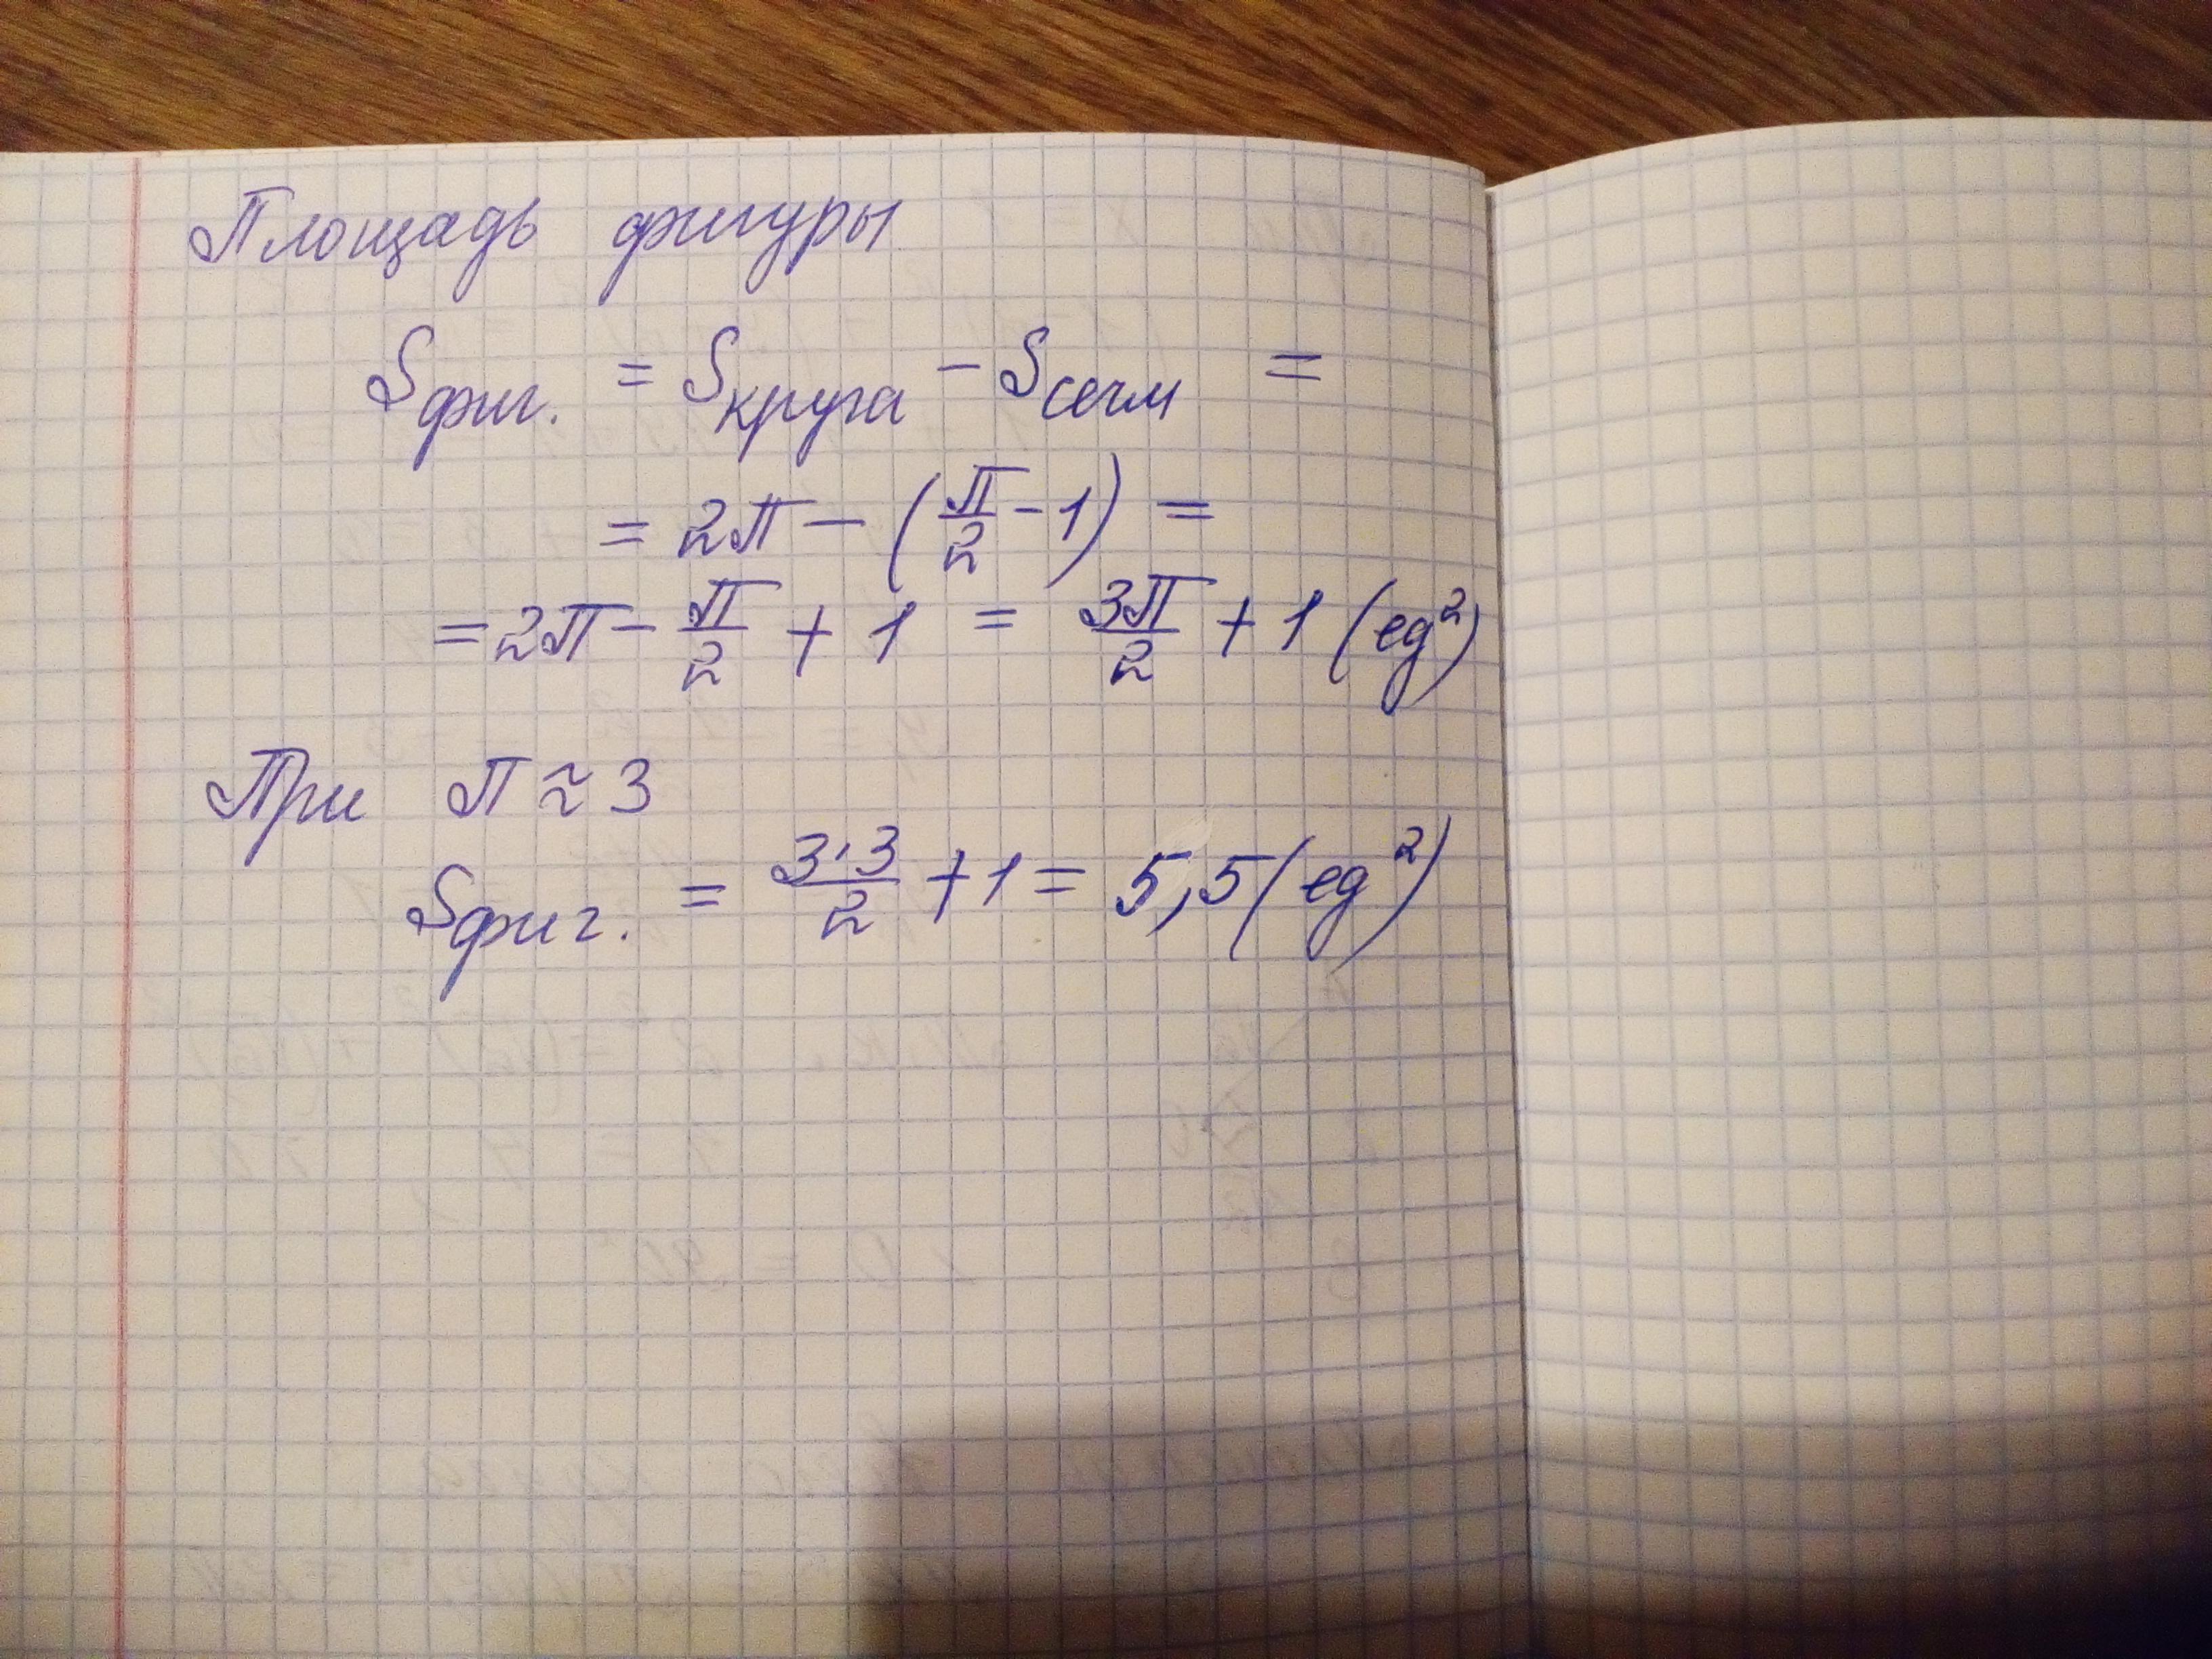 Площадь фигуры
Sфиг. = Sкруга - Sсегм =
= 2π - (π/2 - 1) =
= 2π - π/2 + 1 = 3π/2 + 1 (ед²)
При π ≈ 3
Sфиг. = 3·3/2 + 1 = 5,5 (ед²)